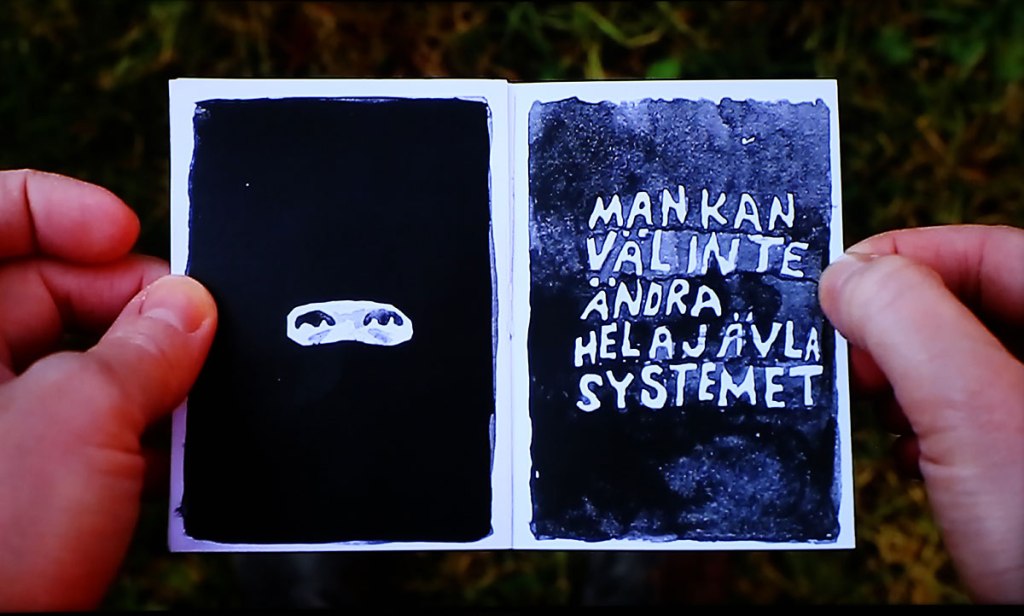 MAN KAN
VÄL INTE
ÄNDRA
HELA JÄVLA
SYSTEMET